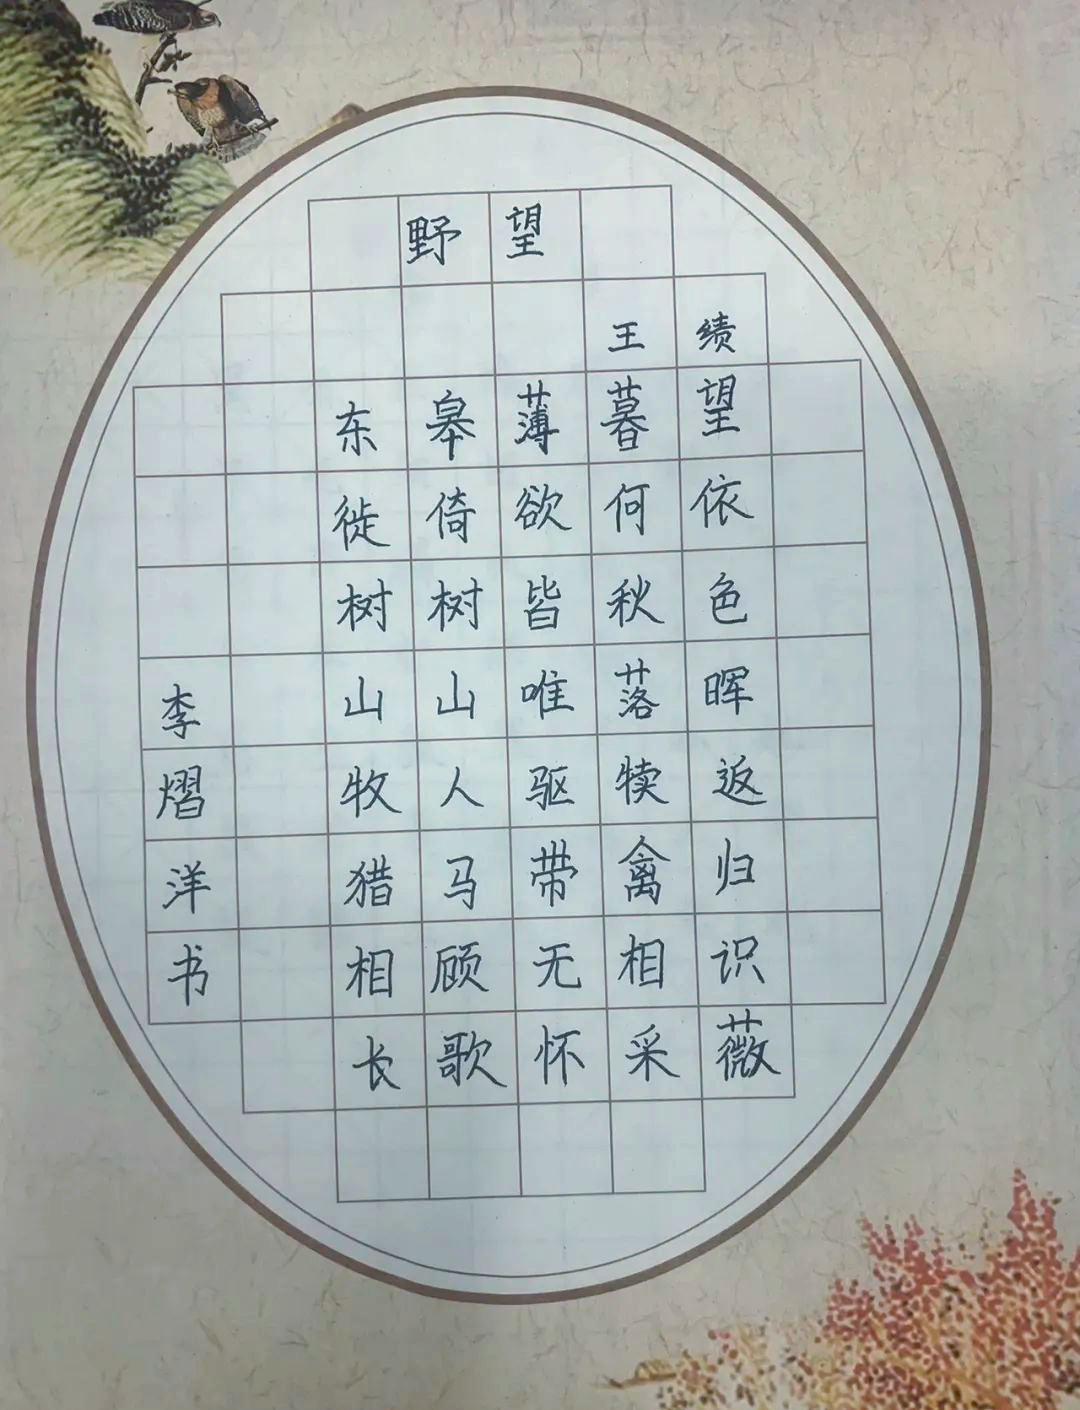 野望
王绩
东皋薄暮望
徙倚欲何依
树树皆秋色
山山唯落晖
牧人驱犊返
猎马带禽归
相顾无相识
长歌怀采薇
李熠洋书